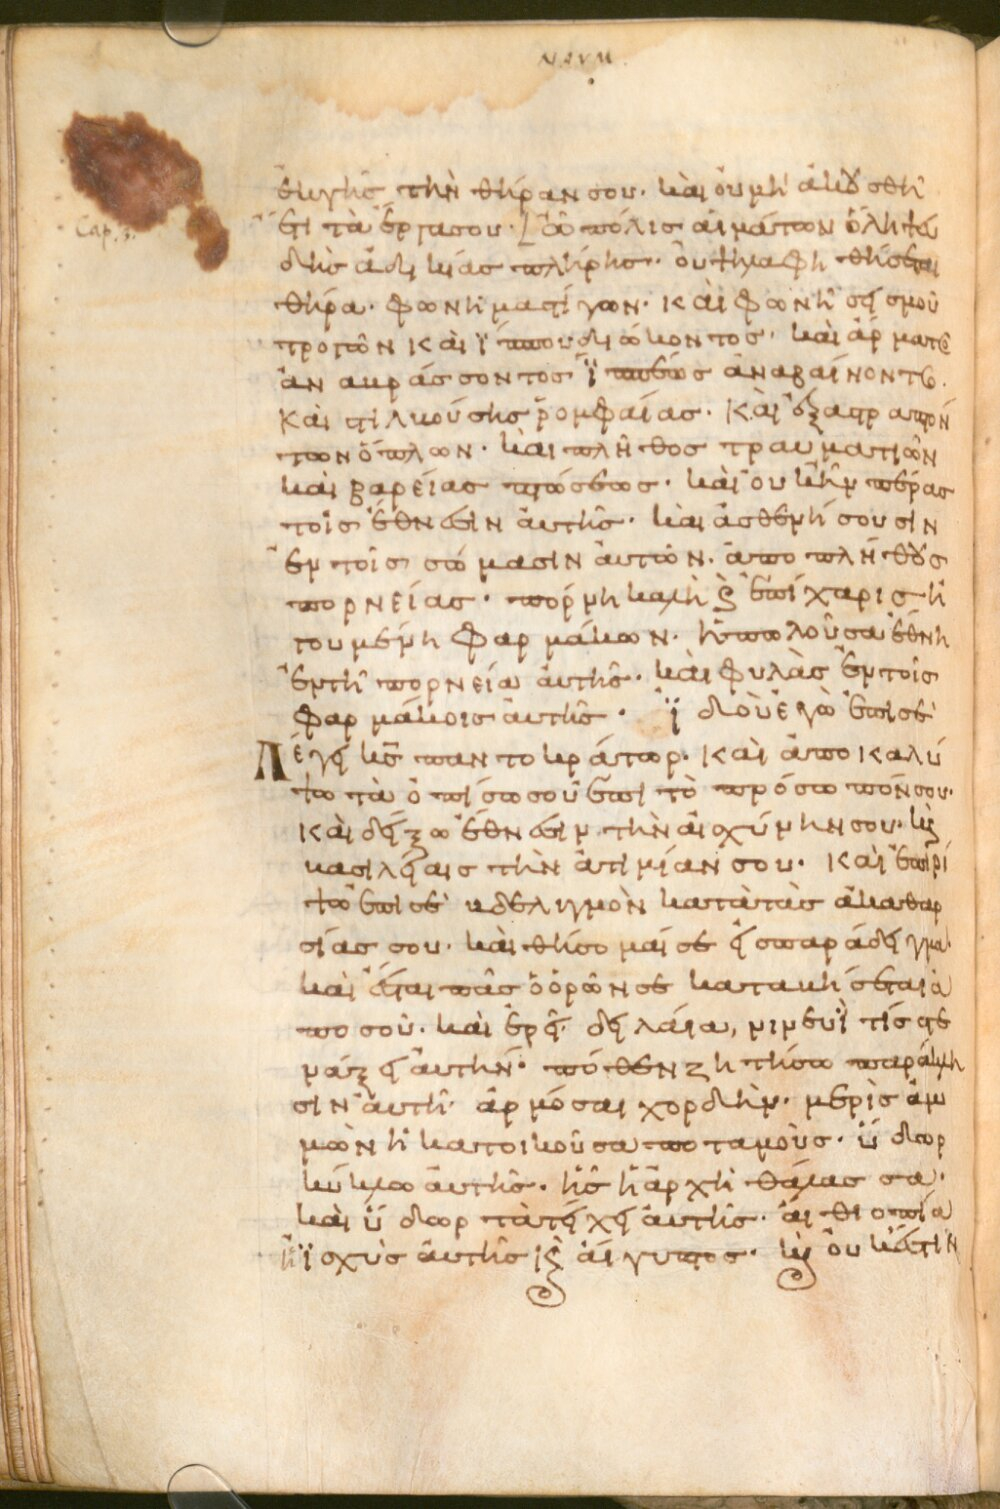 ΝΑΥΜ
ἐκ γῆς τὴν θήραν σου. καὶ οὐ μὴ ἀκουσθῆ
ἔτι τὰ ἔργα σου. ὦ πόλις αἱμάτων ὅλη ψευ
Cap. 3.
δὴς ἀδικίας πλήρης. οὐ ψηλαφηθήσεται
θήρα. φωνὴ μαστίγων. καὶ φωνὴ σεισμοῦ
τροχῶν καὶ ἵππου διώκοντος. καὶ ἅρματος
ἀναβράσσοντος ἵππέως ἀναβαίνοντος.
καὶ στιλβούσης ῥομφαίας. καὶ ἐξαστραπτόν
των ὅπλων. καὶ πλῆθος τραυματιῶν
καὶ βαρείας πτώσεως. καὶ οὐκ ἦν πέρας
τοῖς ἔθνεσιν αὐτῆς. καὶ ἀσθενήσουσιν
ἐν τοῖς σώμασιν αὐτῶν. ἀπὸ πλήθους
πορνείας. πόρνη καλὴ καὶ ἐπίχαρις ἡ
γουμένη φαρμάκων. ἡ πωλοῦσα ἔθνη
ἐν τῆ πορνεία αὐτῆς. καὶ φυλὰς ἐν τοῖς
φαρμάκοις αὐτῆς. ἰδοὺ ἐγὼ ἐπὶ σὲ
Λέγει κς παντοκράτωρ. καὶ ἀποκαλύ
ψω τὰ ὀπίσω σου ἐπὶ τὸ πρόσωπόν σου.
καὶ δείξω ἔθνεσιν τὴν αἰσχύνην σου. καὶ
βασιλείαις τὴν ἀτιμίαν σου. καὶ ἐπιρί
ψω ἐπὶ σὲ βδελυγμὸν κατὰ τὰς ἀκαθαρ
σίας σου. καὶ θήσομαί σε εἰς παράδειγμα.
καὶ ἔσται πᾶς ὁ ὁρῶν σε καταβήσεται ἀ
πὸ σοῦ. καὶ ἐρεῖ. δειλαία, νινευὶ τίς στε
νάξει αὐτήν. πόθεν ζητήσω παράκλη
σιν αὐτῆ. ἁρμόσαι χορδὴν. μερὶς ἀμ
μὼν ἡ κατοικοῦσα ποταμοὺς. ὕδωρ
κύκλω αὐτῆς. ἧς ἡ ἀρχὴ θάλασσα.
καὶ ὕδωρ τὰ τείχη αὐτῆς. αἰθιοπία
ἡ ἰσχὺς αὐτῆς καὶ αἴγυπτος. καὶ οὐκ ἔστιν